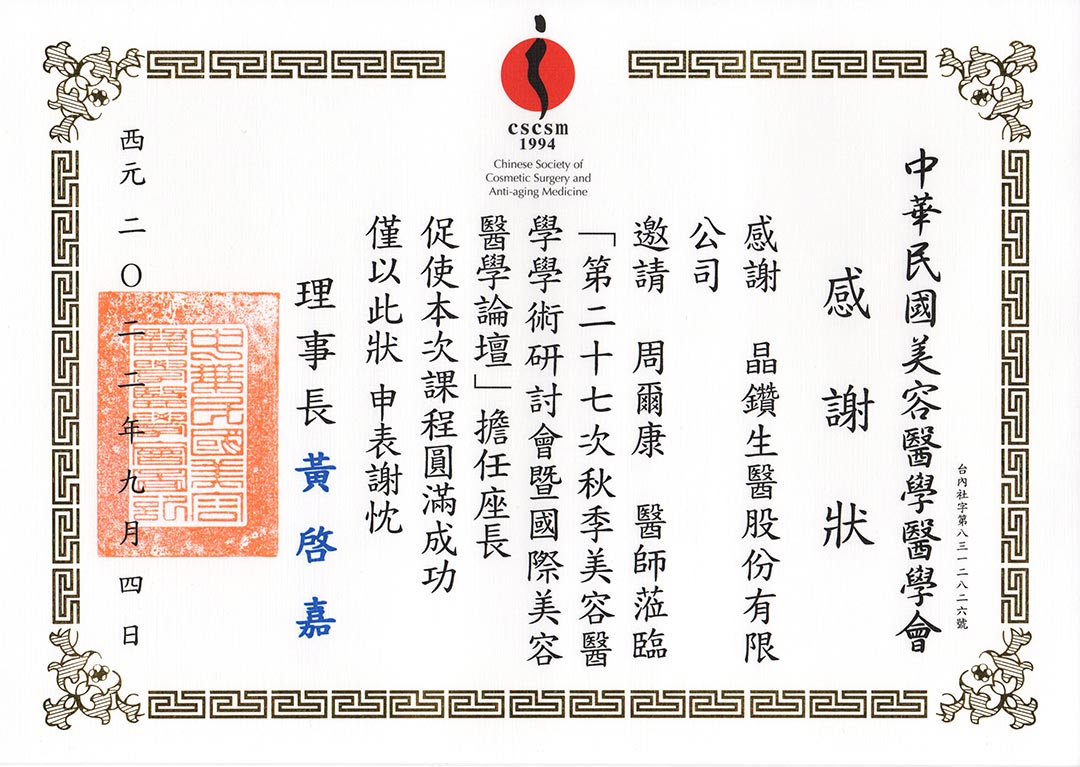 cscsm
1994
Chinese Society of
Cosmetic Surgery and
Anti-aging Medicine
中華民國美容醫學醫學會
台內社字第八三一二八二六號
感謝狀
感謝 晶鑽生醫股份有限
公司
邀請 周爾康 醫師蒞臨
「第二十七次秋季美容醫
學學術研討會暨國際美容
醫學論壇」擔任座長
促使本次課程圓滿成功
僅以此狀 申表謝忱
理事長 黃啓嘉
西元二〇二二年九月四日
中華民國美容
醫學醫學會